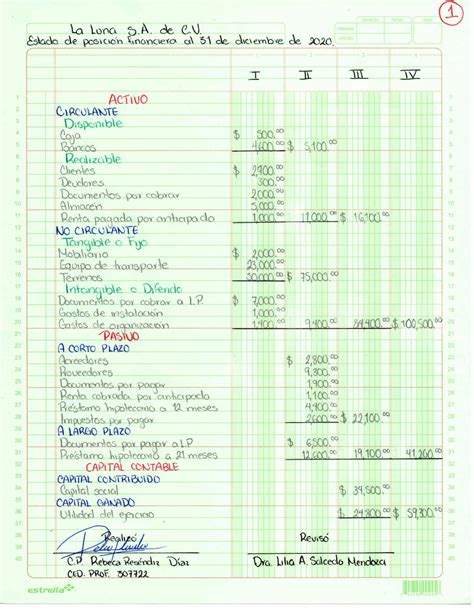 1
La Luna S.A. de C.V.
Estado de posición financiera al 31 de diciembre de 2020.
I II III IV
1 ACTIVO
2 CIRCULANTE
3 Disponible
4 Caja $ 500.00
5 Bancos 4,600.00 $ 5,100.00
6 Realizable
7 Clientes $ 2,900.00
8 Deudores 300.00
9 Documentos por cobrar 2,000.00
10 Almacén 5,000.00
11 Renta pagada por anticipado 1,000.00 11,000.00 $ 16,100.00
12 NO CIRCULANTE
13 Tangible o Fijo
14 Mobiliario $ 2,000.00
15 Equipo de transporte 23,000.00
16 Terrenos 50,000.00 $ 75,000.00
17 Intangible o Diferido
18 Documentos por cobrar a L.P. $ 7,000.00
19 Gastos de instalación 1,000.00
20 Gastos de organización 1,400.00 9,400.00 84,400.00 $ 100,500.00
21 PASIVO
22 A CORTO PLAZO
23 Acreedores $ 2,800.00
24 Proveedores 9,300.00
25 Documentos por pagar 1,900.00
26 Renta cobrada por anticipado 1,100.00
27 Préstamo hipotecario a 12 meses 4,400.00
28 Impuestos por pagar 2,600.00 $ 22,100.00
29 A LARGO PLAZO
30 Documentos por pagar a L.P $ 6,500.00
31 Préstamo hipotecario a 21 meses 12,600.00 19,100.00 41,200.00
32 CAPITAL CONTABLE
33 CAPITAL CONTRIBUIDO
34 Capital social $ 34,500.00
35 CAPITAL GANADO
36 Utilidad del ejercicio $ 24,800.00 $ 59,300.00
37
38 Realizó Revisó
39
40 C.P. Rebeca Reséndiz Díaz Dra. Lilia A. Salcedo Mendoza
CED. PROF. 307722
estrella